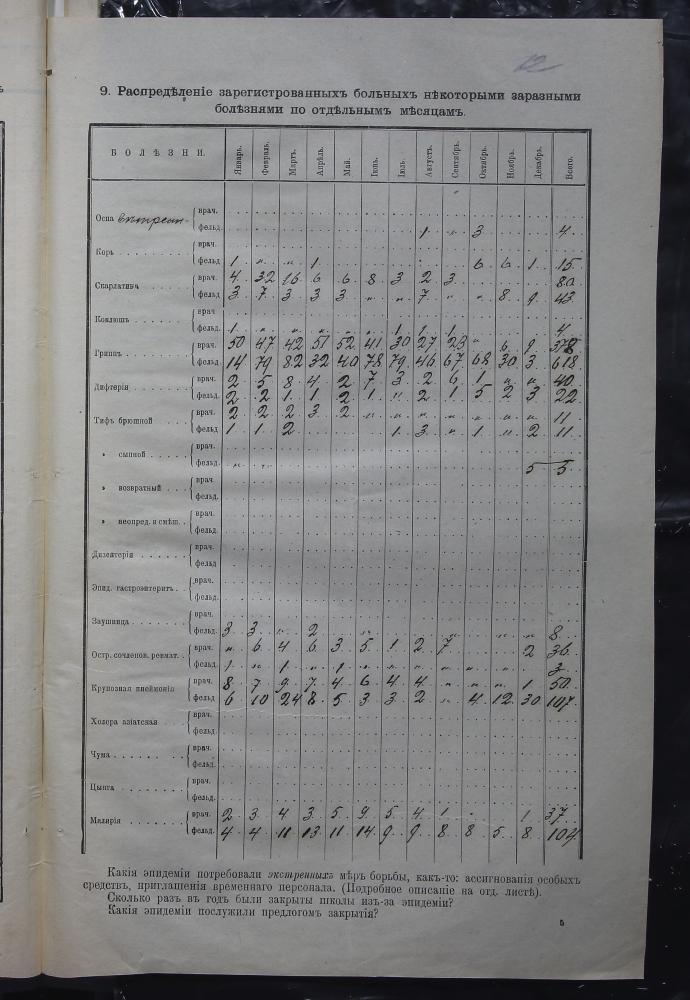 12
9. Распредѣленіе зарегистрованныхъ больныхъ нѣкоторыми заразными
болѣзнями по отдѣльнымъ мѣсяцамъ.
БОЛѢЗНИ. Январь. Февраль. Мартъ. Апрѣль. Май. Іюнь. Іюль. Августъ. Сентябрь. Октябрь. Ноябрь. Декабрь. Всего.
Оспа врач.
фельд. 1 " 3 4
Корь врач.
фельд. 1 " " 1 6 6 1 15
Скарлатина врач. 4 32 16 6 6 8 3 2 3 80
фельд. 3 7 3 3 3 " " 7 " " 8 9 43
Коклюшъ врач.
фельд. 1 " " " " " 1 1 1 4
Гриппъ врач. 50 47 42 51 52 41 30 27 23 " 6 9 378
фельд. 14 79 82 32 40 78 79 46 67 68 30 3 618
Дифтерія врач. 2 5 8 4 2 7 3 2 6 1 " " 40
фельд. 2 2 1 1 2 1 " 2 1 5 2 3 22
Тифъ брюшной врач. 2 2 2 3 2 " " " " " " " 11
фельд. 1 1 2 1 3 " 1 " 2 11
" сыпной врач.
фельд. " " 5 5
" возвратный врач.
фельд.
" неопред. и смѣш. врач.
фельд.
Дизентерія врач.
фельд.
Эпид. гастроэнтеритъ врач.
фельд.
Заушница врач.
фельд. 3 3 " 2 " " " " 8
Остр. сочленов. ревмат. врач. " 6 4 6 3 5 1 2 7 2 36
фельд. 1 " 1 " 1 " " " " " " " 3
Крупозная пнеймонія врач. 8 7 9 7 4 6 4 4 " " " 1 50
фельд. 6 10 24 8 5 3 3 2 " 4 12 30 107
Холера азіатская врач.
фельд.
Чума врач.
фельд.
Цынга врач.
фельд.
Малярія врач. 2 3 4 3 5 9 5 4 1 1 37
фельд. 4 4 11 13 11 14 9 9 8 8 5 8 104
Какія эпидеміи потребовали экстренныхъ мѣръ борьбы, какъ-то: ассигнованія особыхъ
средствъ, приглашенія временнаго персонала. (Подробное описаніе на отд. листѣ).
Сколько разъ въ годъ были закрыты школы изъ-за эпидеміи?
Какія эпидеміи послужили предлогомъ закрытія?
5